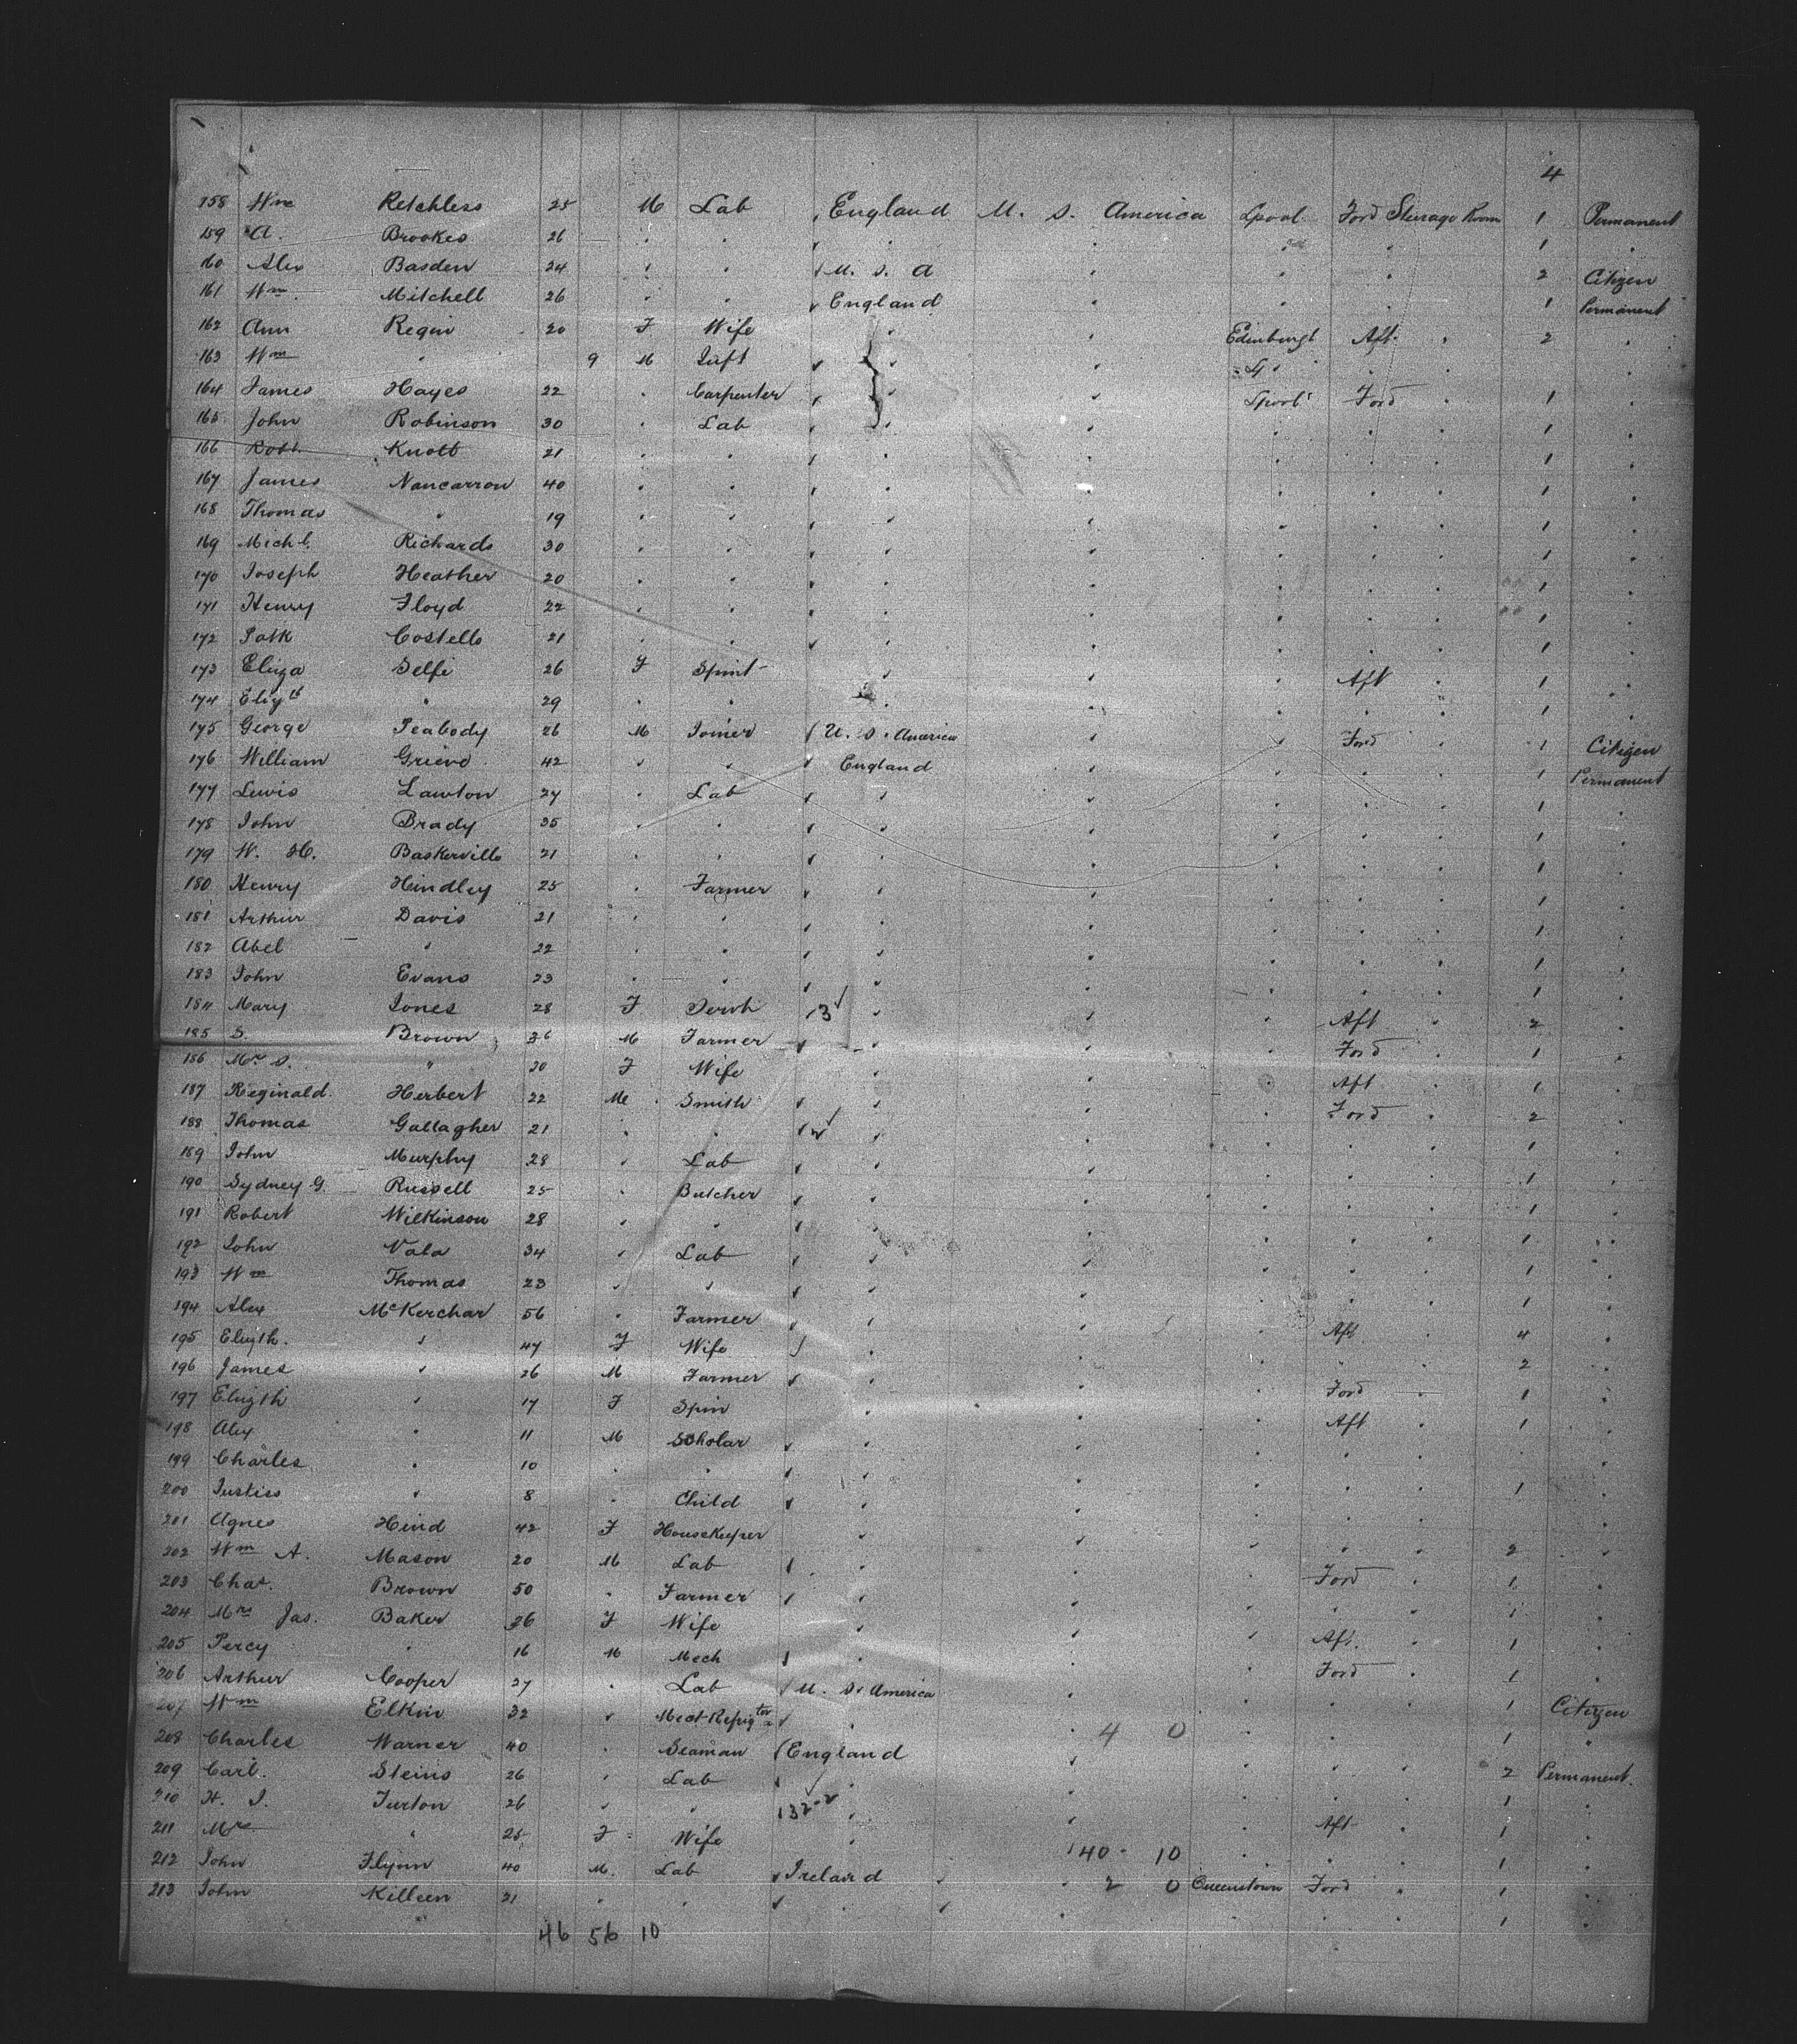 4
158 Wm Retchless 25 M Lab England U. S. America Lpool Ford Steerage Room 1 Permanent
159 A. Brookes 26 " " " " " " 1 "
160 Alex Basden 24 " " U. S. A " " " 2 Citizen
161 Wm. Mitchell 26 " " England " " " 1 Permanent
162 Ann Regin 20 F Wife " " Edinburgh Aft " 2 "
163 Wm " 9 M Inft " " " "
164 James Hayes 22 " Carpenter " " Lpool Ford " 1 "
165 John Robinson 30 " Lab " " " " " 1 "
166 Robt. Knott 21 " " " " " " " 1 "
167 James Nancarrow 40 " " " " " " " 1 "
168 Thomas " 19 " " " " " " " 1 "
169 Michl. Richards 30 " " " " " " " 1 "
170 Joseph Heather 20 " " " " " " " 1 "
171 Henry Floyd 22 " " " " " " " 1 "
172 Patk Costello 21 " " " " " " " 1 "
173 Eliza Selfe 26 F Spinst " " " Aft " 1 "
174 Elizth " 29 " " " " " " " 1 "
175 George Peabody 26 M Joiner U. S. America " " Ford " 1 Citizen
176 William Grieve 42 " " England " " " " 1 Permanent
177 Lewis Lawton 27 " Lab " " " " " 1 "
178 John Brady 35 " " " " " " " 1 "
179 W. H. Baskerville 21 " " " " " " " 1 "
180 Henry Hindley 25 " Farmer " " " " " 1 "
181 Arthur Davis 21 " " " " " " " 1 "
182 Abel " 22 " " " " " " " 1 "
183 John Evans 23 " " " " " " " 1 "
184 Mary Jones 28 F Servt 3 " " " Aft " 2 "
185 S. Brown 36 M Farmer " " " Ford " 1 "
186 Mrs S. " 30 F Wife " " " Aft " 1 "
187 Reginald. Herbert 22 M Smith " " " Ford " 2 "
188 Thomas Gallagher 21 " " " " " " " 1 "
189 John Murphy 28 " Lab " " " " " 1 "
190 Sydney G. Russell 25 " Butcher " " " " " 1 "
191 Robert Wilkinson 28 " " " " " " " 1 "
192 John Vala 34 " Lab " " " " " 1 "
193 Wm Thomas 23 " " " " " " " 1 "
194 Alex McKerchar 56 " Farmer " " " Aft " 4 "
195 Elizth. " 47 F Wife " " " " " 2 "
196 James " 26 M Farmer " " " Ford " 1 "
197 Elizth " 17 F Spin " " " Aft " 1 "
198 Alex " 11 M Scholar " " " " " "
199 Charles " 10 " " " " " " " 1 "
200 Justiss " 8 " Child " " " " " "
201 Agnes Hind 42 F Housekeeper " " " " " 2 "
202 Wm A. Mason 20 M Lab " " " Ford " 1 "
203 Chas. Brown 50 " Farmer " " " " " 1 "
204 Mrs Jas. Baker 36 F Wife " " " Aft. " 1 "
205 Percy " 16 M Mech " " " Ford " 1 "
206 Arthur Cooper 27 " Lab U. S. America " " " " 1 Citizen
207 Wm Elkin 32 " " 4 0 " " " 1 "
208 Charles Warner 40 " Seaman England " " " " 2 Permanent.
209 Carl. Steins 26 " Lab " " " " " 1 "
210 H. J. Turton 26 " " 132-2 " " " Aft " 1 "
211 Mrs " 25 F Wife " 40 - 10 " " " 1 "
212 John Flynn 40 M. Lab Ireland " 2 0 Queenstown Ford " 1 "
213 John Killeen 21 " " " " " " " 1 "
46 56 10